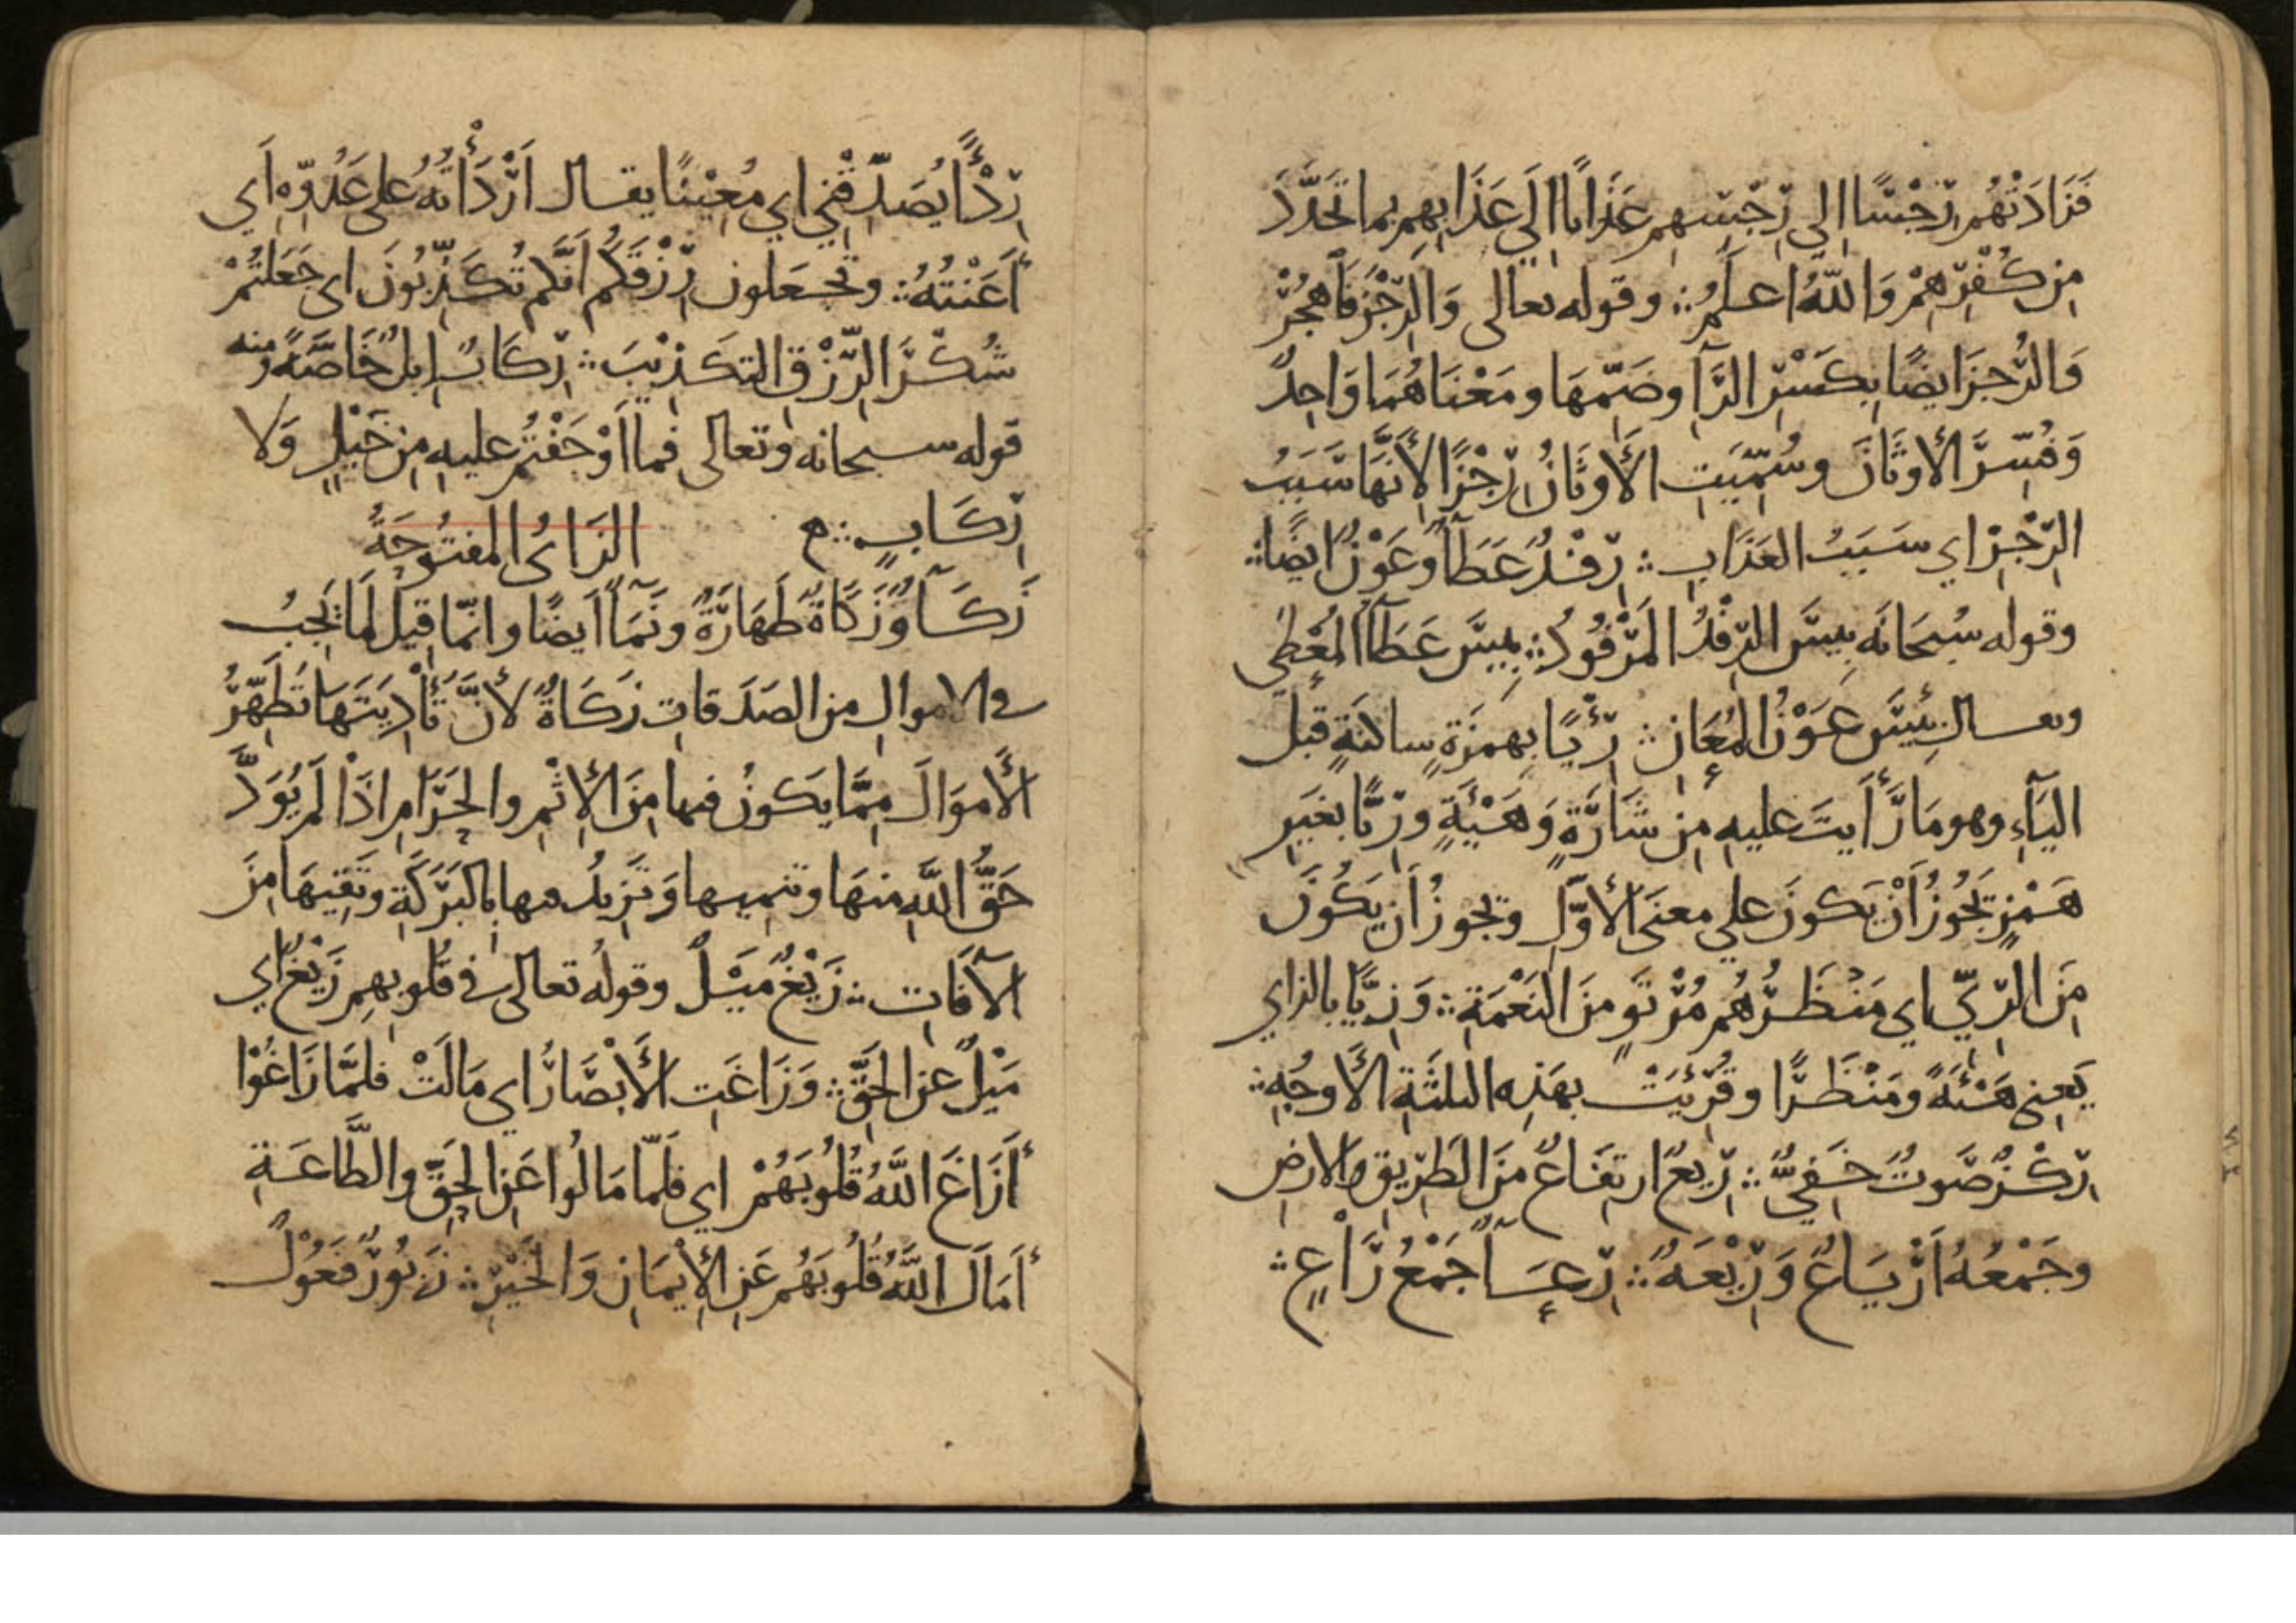 فَزَادَتْهُم رِجْسًا إلي رِجْسِهِم عَذَابًا إلَي عَذَابِهِم بما تَجَدَّدَ
مِن كُفْرِهِمْ وَاللّهُ اعلَمُ ؞ وقوله تعالى وَالرِّجْزَ فَاهجُرْ
وَالرُّجزَ ايضًا بِكَسْرِ الرَّآ وضَمِّهَا ومَعْنَاهُمَا وَاحِدٌ
وَفُسِّرَ الأوثَانَ وسُمِّيَتِ الأَوثَانُ رِجْزًا لأَنَّهَا سَبَبُ
الرِّجْزِ اي سَبَبُ العَذَابِ ؞ رِفْدٌ عَطَآءٌ وعَوْنٌ ايضًا ؞
وقوله سُبحَانَه بِيسَ الرِّفْدُ المَرْفُودُ ؞ بِيسَ عَطَآءُ المُعْطِي
ويقال بِئْسَ عَوْنُ المُعَانِ ؞ رِئْيًا بِهَمزَةٍ ساكنَةٍ قبل
اليَآءِ وهو مَا رَأَيتَ عليهِ مِن شَارَةٍ وَهَيْئَةٍ وَرِيًّا بغَيرِ
هَمْزٍ يَجُوزُ أَنْ يَكونَ علي معنَى الأوَّلِ ويجوزُ أن يَكُونَ
مِنَ الرِّيِّ اي مَنْظَرُهُم مُرْتَوٍ مِنَ النَعْمَةِ ؞ وَزِيًّا بالزاي
يَعنِي هَيْئَةً ومَنْظَرًا وقُرِئَتْ بهَذِه الثلثَةِ الأَوجُهِ ؞
رِكْزٌ صَوتٌ خَفِيٌّ ؞ رِيعٌ ارتفَاعٌ مِنَ الطَرِيقِ والارضِ
وجَمْعُهُ أَرْيَاعٌ وَرِيْعَةٌ ؞ رِعَآءٌ جَمْعُ رَاعٍ ؞
رِدْءًا يُصَدِّقْنِي اي مُعِيْنًا يقال أَرْدَأْتُهُ على عَدُوِّهِ أَي
أَعَنْتُهُ ؞ وتجعَلون رِزْقَكُم أنَّكم تُكَذِّبُونَ اى جَعَلتُمْ
شُكْرَ الرِّزْقِ التكَذِيْبَ ؞ رِكَابٌ إبِلٌ خَاصَّةً ومنه
قوله سبحانه وتعالى فما أَوْجَفْتُم عليهِ مِن خَيْلٍ وَلا
رِكَابٍ ؞ الزَايُ المفتُوحَةُ
زَكَآءٌ وَزَكَاةٌ طَهَارَةٌ ونَمَآءٌ أيضًا وانّما قيل لِمَا يَجِبُ
في الاموالِ مِن الصَدَقاتِ زَكَاةٌ لأَنَّ تَأْدِيَتَهَا تُطَهِّرُ
الأَموَالَ مِمَّا يَكونُ فيها مِنَ الإِثْمِ والحَرَامِ إذَا لَم يُوَدَّ
حَقُّ اللَّهِ منهَا وتنميها وَتَزِيدُ فيها بالبَرَكَةِ وتَقِيهَا مِنَ
الآفَاتِ ؞ زَيْغٌ مَيْلٌ وقولُه تعالى في قُلُوبِهِم زَيْغٌ أي
مَيْلٌ عن الحَقِّ ؞ وَزَاغَتِ الأَبْصَارُ اي مَالَتْ فلمَّا زَاغُوْا
أَزَاغَ اللَّهُ قُلُوبَهُمْ اي فَلَمّا مَالُوا عَنِ الحَقِّ والطَّاعَةِ
أَمَالَ اللَّهُ قُلُوبَهُم عَنِ الإِيمَانِ وَالخَيْرِ ؞ زَبُورٌ فَعُوْلٌ